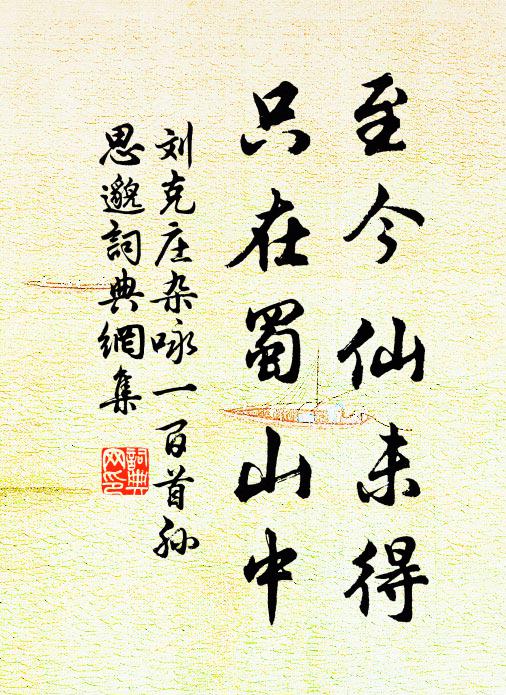 至今仙未得
只在蜀山中
刘克庄杂咏一百首孙
思邈詞典網集
詞典
网印